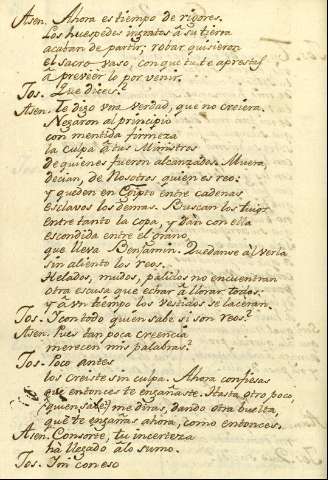 Asen. Ahora es tiempo de rigores.
Los huespedes ingratos à su tierra
acaban de partir; robar quisieron
el sacro vaso, con que tu te aprestas
a preveer lo por venir.
Jos. Que dices?
Asen. Te digo una verdad, que no creiera.
Negaron al principio
con mentida firmeza
la culpa à tus Ministros
de quienes fueron alcanzados. Muera,
decian, de Nosotros quien es reo:
y queden en Egipto entre cadenas
Esclavos los demas. Buscan los tuios
Entre tanto la copa, y dan con ella
escondida entre el grano,
que lleva Benjamin. Quedanse àl verla
sin aliento los reos.
Helados, mudos, palidos no encuentran
otra escusa que echar à llorar todos:
y à un tiempo los vestidos se laceran.
Jos. I con todo quien sabe si son reos?
Asen. Pues tan poca creencia
merecen mis palabras?
Jos. Poco antes
los creiste sin culpa. Ahora confiesas
que entonces te engañaste. Hasta otro poco,
(quien sabe) me diras, dando otra buelta,
que te engañas ahora, como entonces.
Asen. Consorte, tu incerteza
ha llegado àlo sumo.
Jos. I con eso